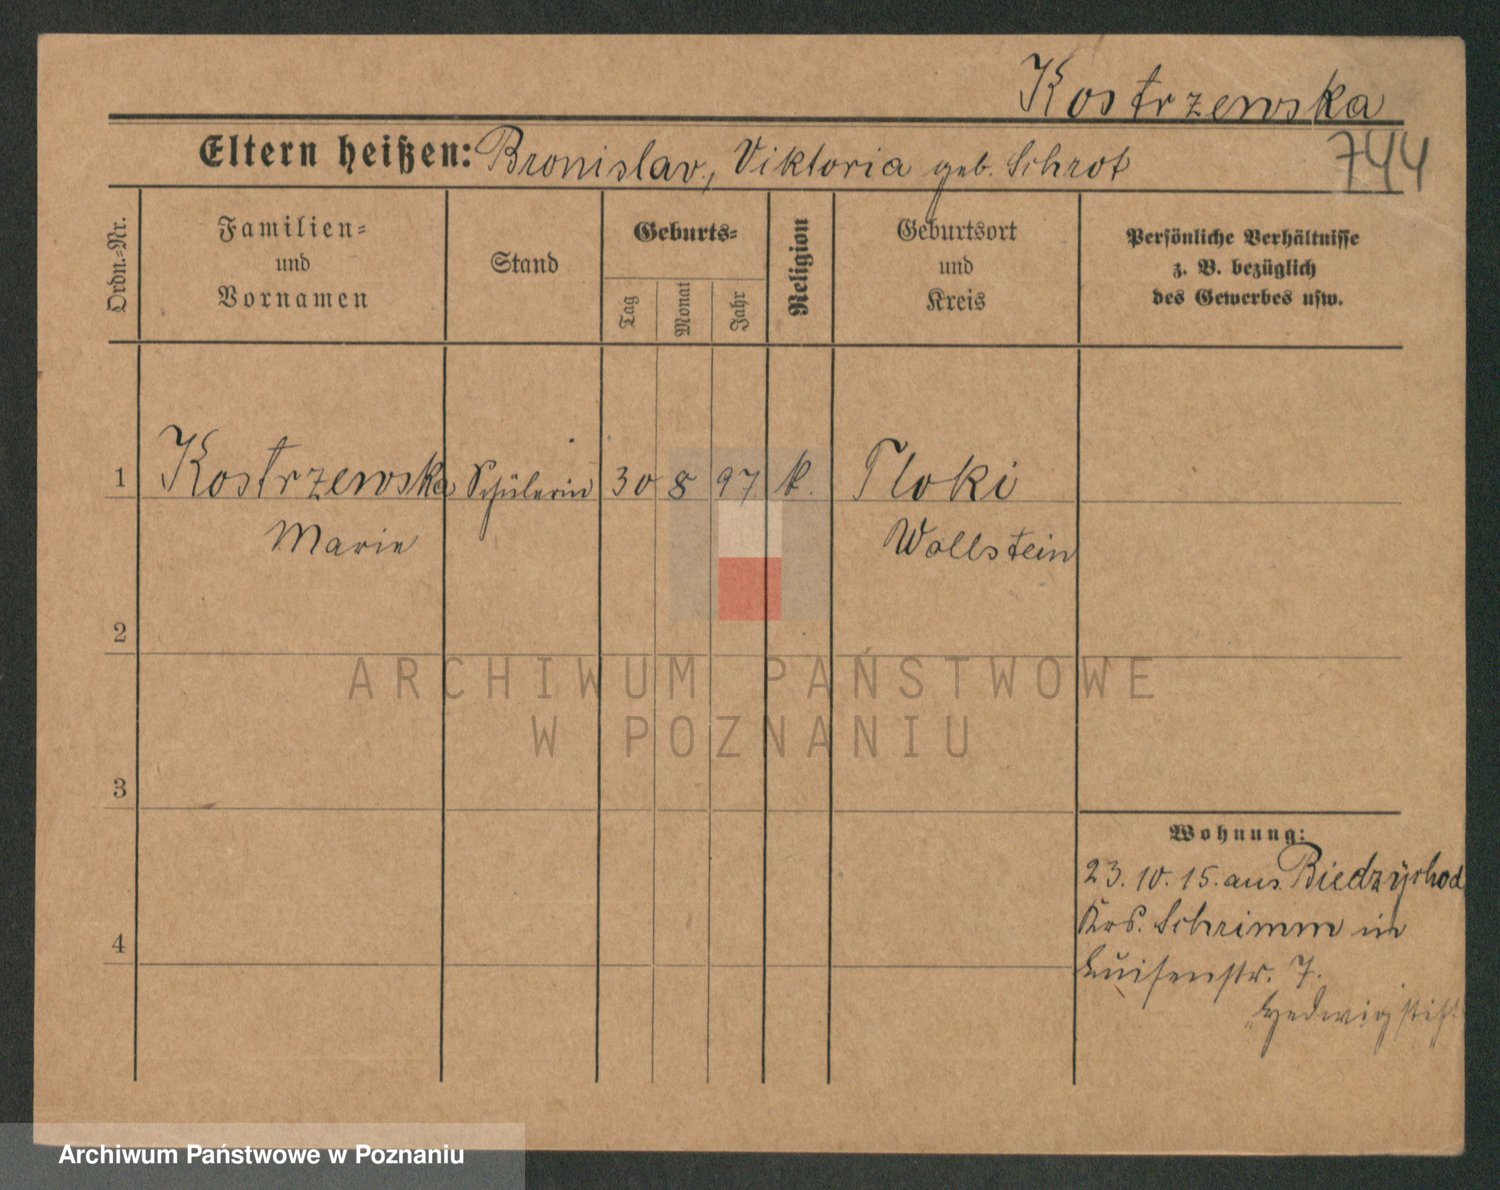 Kostrzewska
744
Eltern heißen: Bronislav, Viktoria geb. Schrot
Ordn.-Nr.
Familien-
und
Vornamen
Stand
Geburts-
Tag
Monat
Jahr
Religion
Geburtsort
und
Kreis
Persönliche Verhältnisse
z. B. bezüglich
des Gewerbes usw.
1 Kostrzewska Schülerin 30 8 97 k. Tloki
Marie Wollstein
2
3
4
Wohnung:
23. 10. 15. aus Biedzyrhod
Krs. Schrimm in
Luisenstr. 7.
"Hedwigstift"
ARCHIWUM PAŃSTWOWE
W POZNANIU
Archiwum Państwowe w Poznaniu